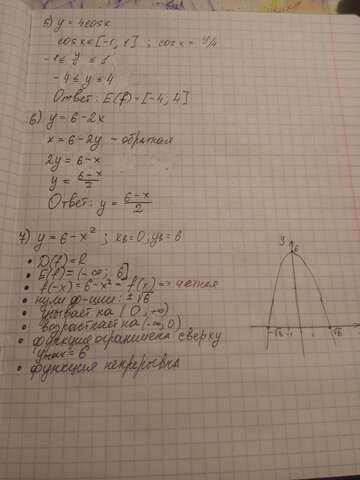 5) y = 4cosx
cosx∈[-1, 1] ; cosx = y/4
-1 ≤ y ≤ 1
-4 ≤ y ≤ 4
Ответ: E(f) = [-4, 4]
6) y = 6-2x
x = 6-2y - обратная
2y = 6-x
y = \frac{6-x}{2}
Ответ: y = \frac{6-x}{2}
7) y = 6-x² ; xв=0; yв=6
• D(f) = R
• E(f) = (-∞, 6]
• f(-x) = 6-x² = f(x) => четная
• нули ф-ции: ±√6
• убывает на (0, +∞)
• возрастает на (-∞, 0)
• функция ограничена сверху
yмах = 6
• функция непрерывна
y
6
-√6
√6